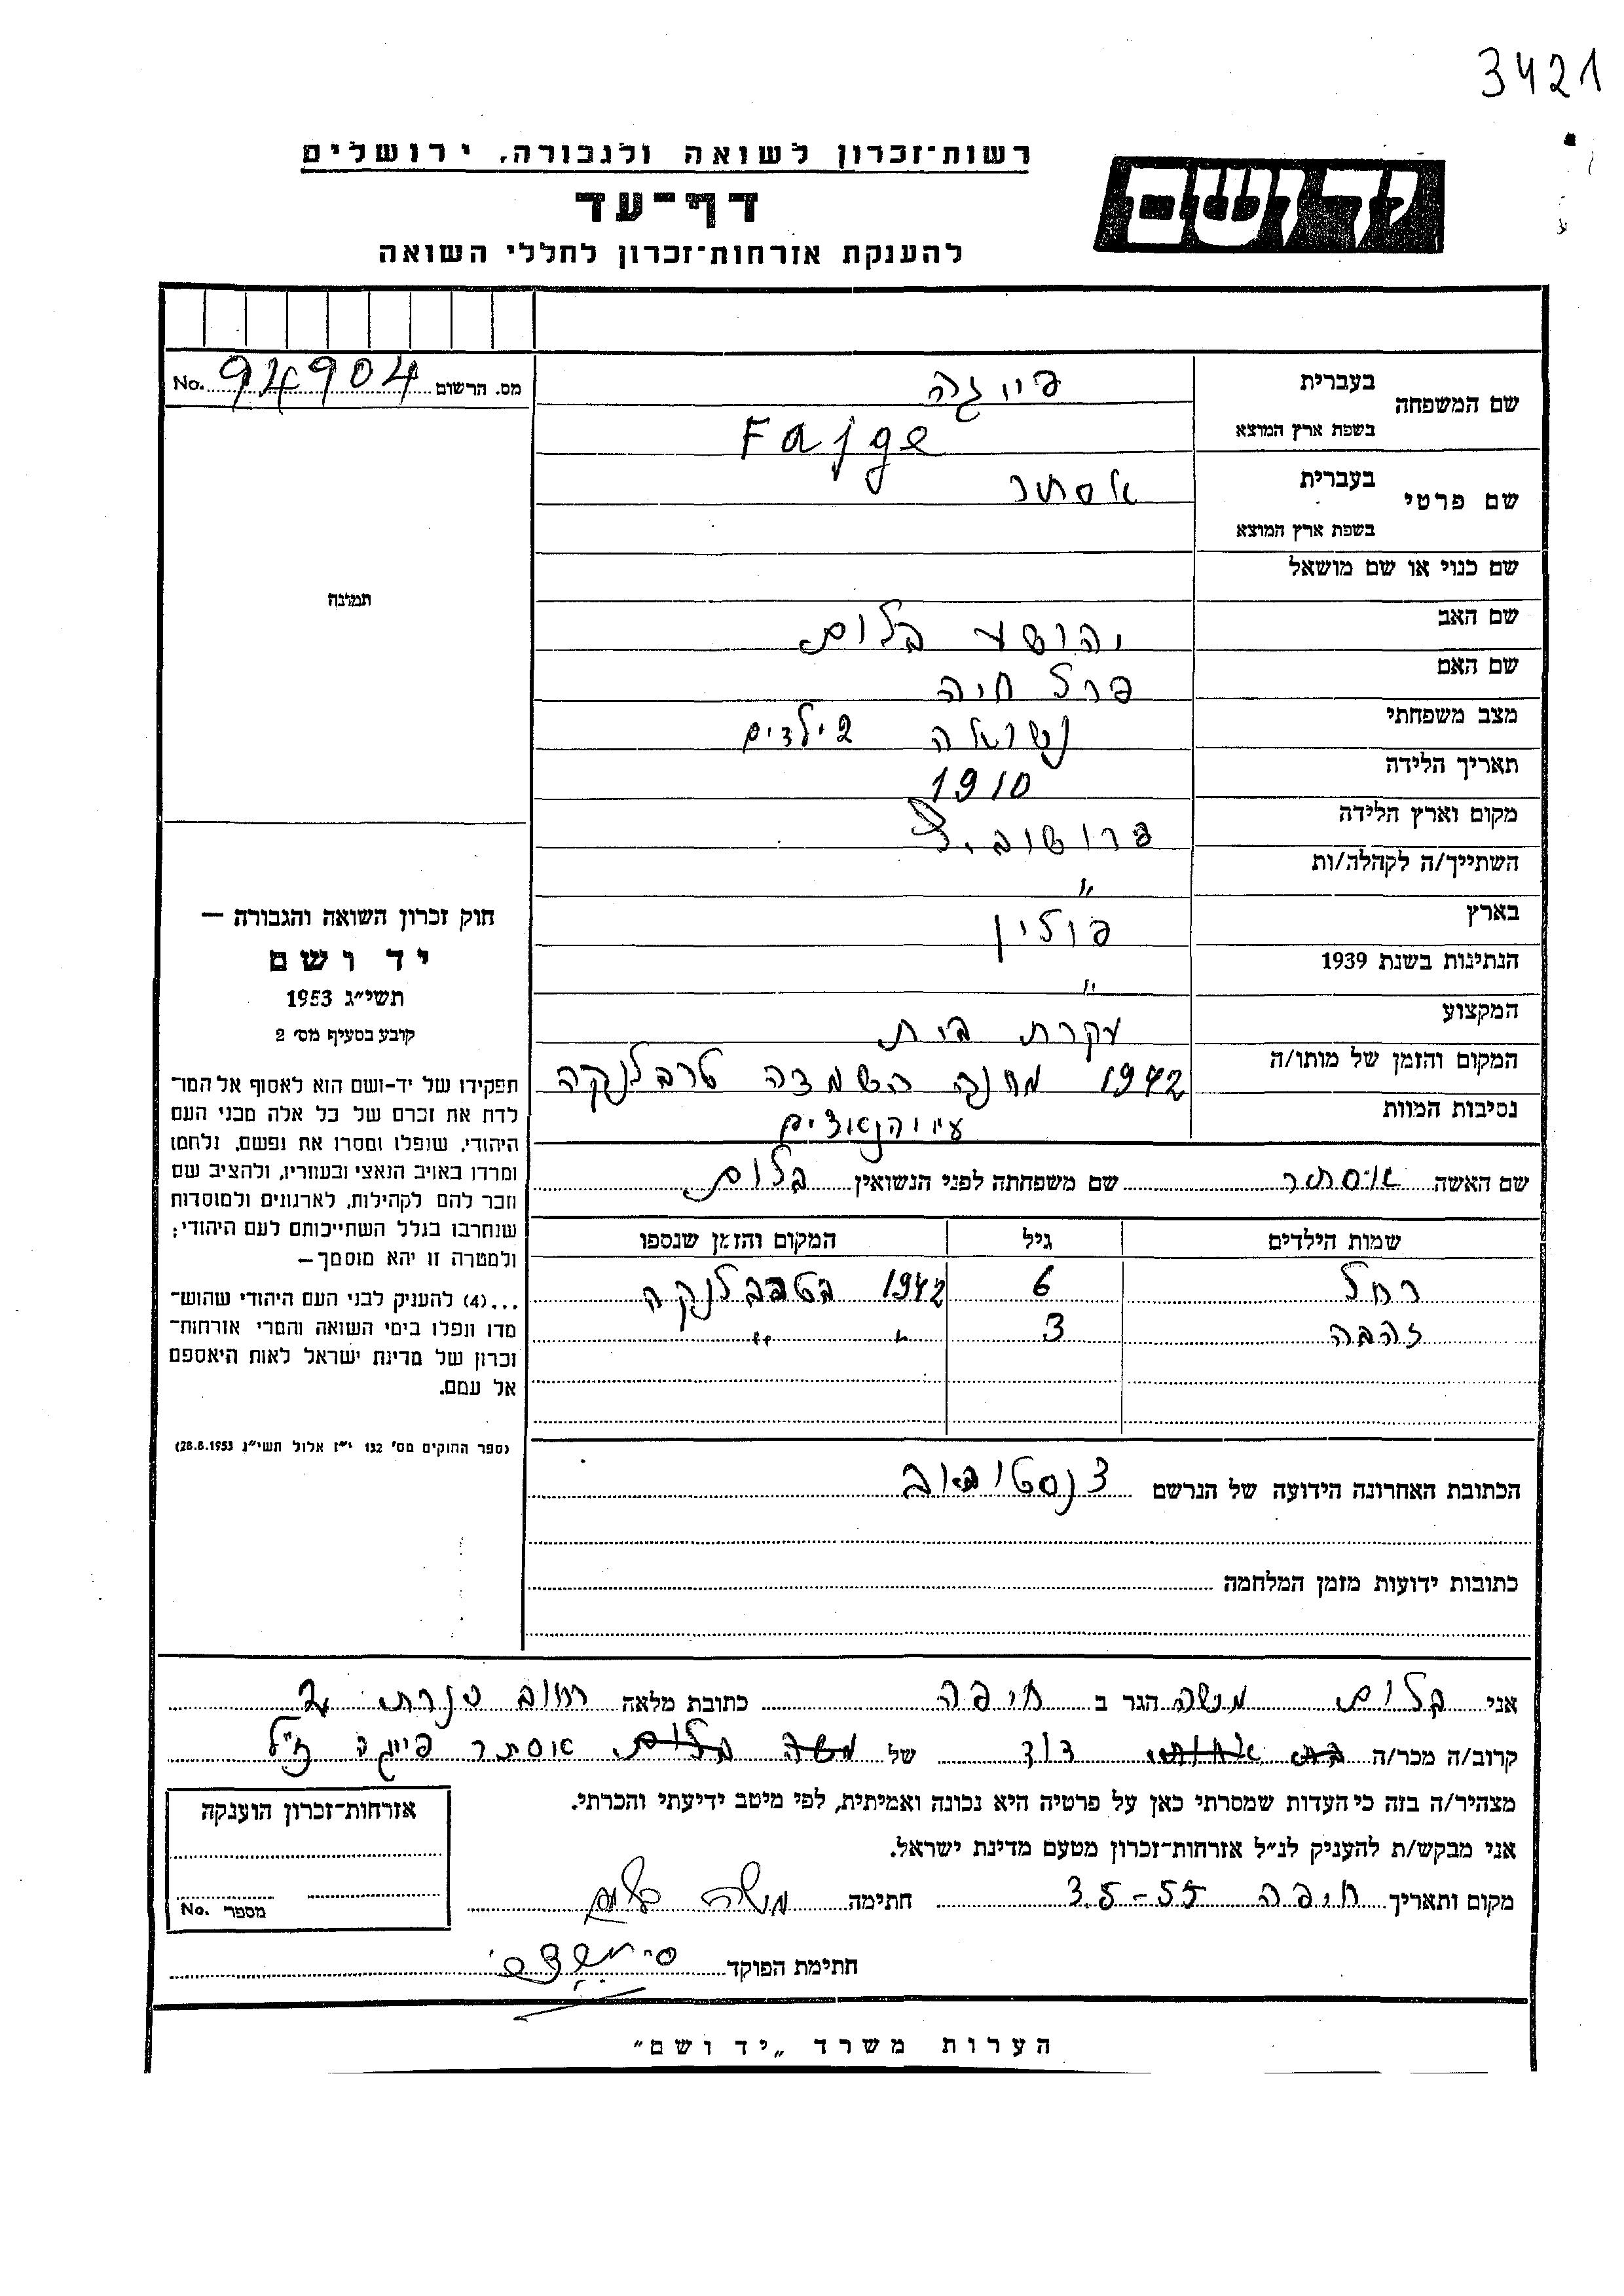 3421
רשות־זכרון לשואה ולגבורה, ירושלים
יד ושם
דף־עד
להענקת אזרחות־זכרון לחללי השואה
מס. הרשום 94904 No.
שם המשפחה בעברית פייגה
בשפת ארץ המוצא Fajge
שם פרטי בעברית אסתר
בשפת ארץ המוצא
שם כנוי או שם מושאל
שם האב יהושע בלום
שם האם פרל חיה
מצב משפחתי נשואה 2 ילדים
תאריך הלידה 1910
מקום וארץ הלידה
השתייך/ה לקהלה/ות "
בארץ פולין
הנתינות בשנת 1939 "
המקצוע עקרת בית
המקום והזמן של מותו/ה 1942 מחנה השמדה טרבלנקה
נסיבות המוות ע"י הנאצים
שם האשה אסתר שם משפחתה לפני הנשואין בלום
שמות הילדים גיל המקום והזמן שנספו
רחל 6 1942 בטרבלנקה
זהבה 3 " "
הכתובת האחרונה הידועה של הנרשם
כתובות ידועות מזמן המלחמה
תמונה
חוק זכרון השואה והגבורה —
יד ושם
תשי"ג 1953
קובע בסעיף מס' 2
תפקידו של יד-ושם הוא לאסוף אל המו־
לדת את זכרם של כל אלה מבני העם
היהודי, שנפלו ומסרו את נפשם, נלחמו
ומרדו באויב הנאצי ובעוזריו, ולהציב שם
וזכר להם לקהילות, לארגונים ולמוסדות
שנחרבו בגלל השתייכותם לעם היהודי;
ולמטרה זו יהא מוסמך—
...(4) להעניק לבני העם היהודי שהוש־
מדו ונפלו בימי השואה והמרי אזרחות־
זכרון של מדינת ישראל לאות היאספם
אל עמם.
(ספר החוקים מס' 132 י"ז אלול תשי"ג 28.8.1953)
אני בלום משה הגר ב חיפה כתובת מלאה רחוב 2
קרוב/ה מכר/ה דוד של אסתר פייגה ז"ל
מצהיר/ה בזה כי העדות שמסרתי כאן על פרטיה היא נכונה ואמיתית, לפי מיטב ידיעתי והכרתי.
אני מבקש/ת להעניק לנ"ל אזרחות־זכרון מטעם מדינת ישראל.
מקום ותאריך חיפה 3.5-55 חתימה משה בלום
חתימת הפוקד
אזרחות־זכרון הוענקה
מספר No.
הערות משרד „יד ושם"